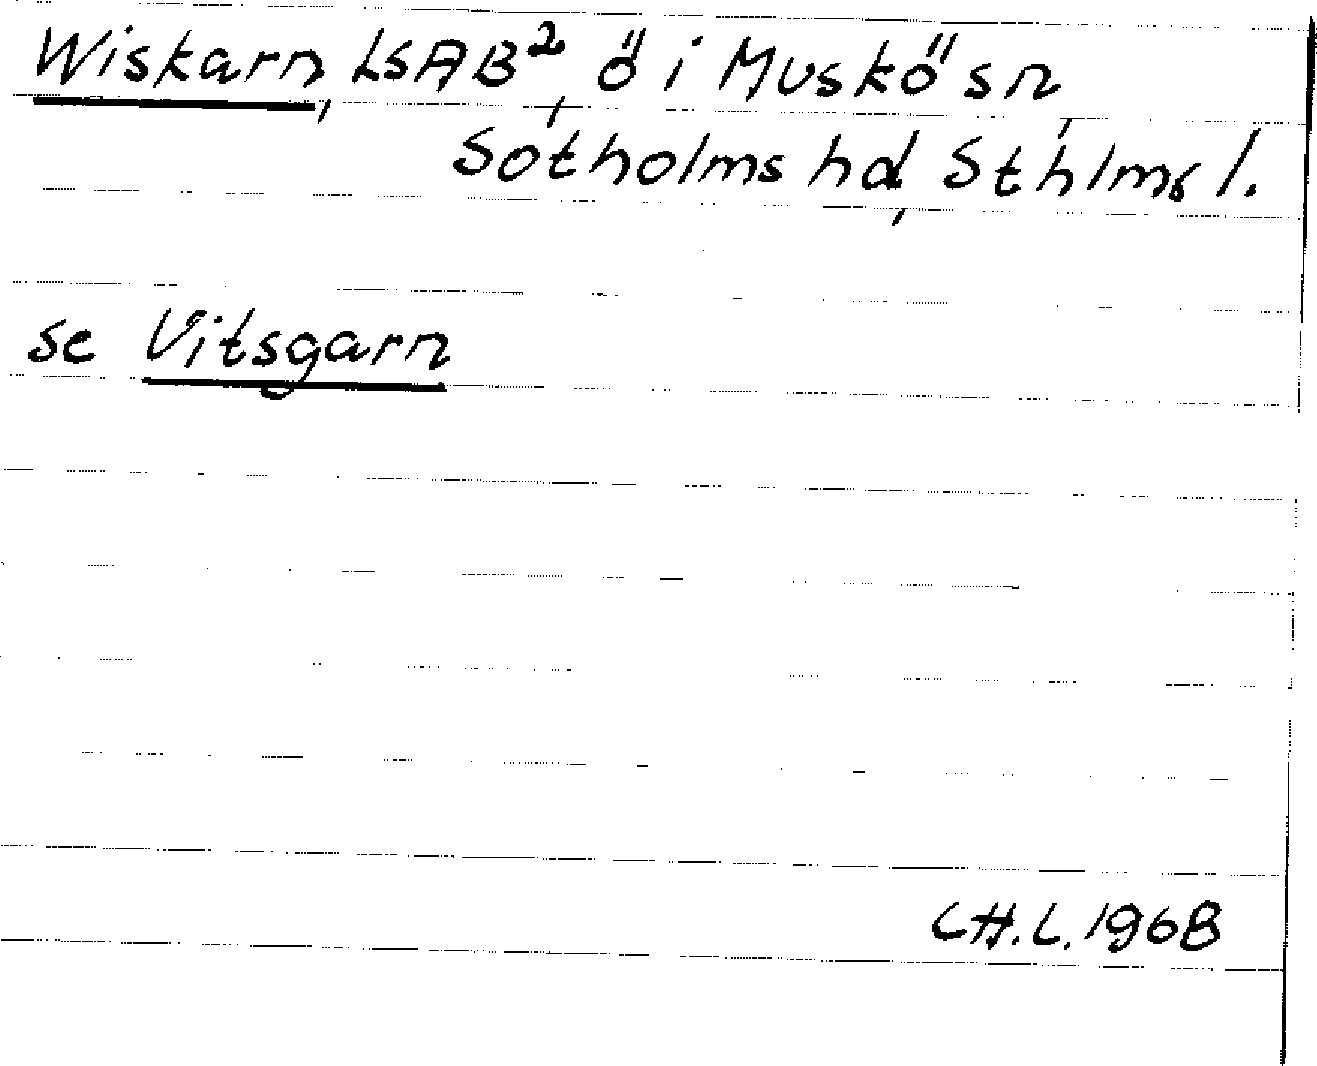 Wiskarn, LSAB², ö i Muskö sn,
Sotholms hd, Sthlms l.
se Vitsgarn
C.H.L. 1968